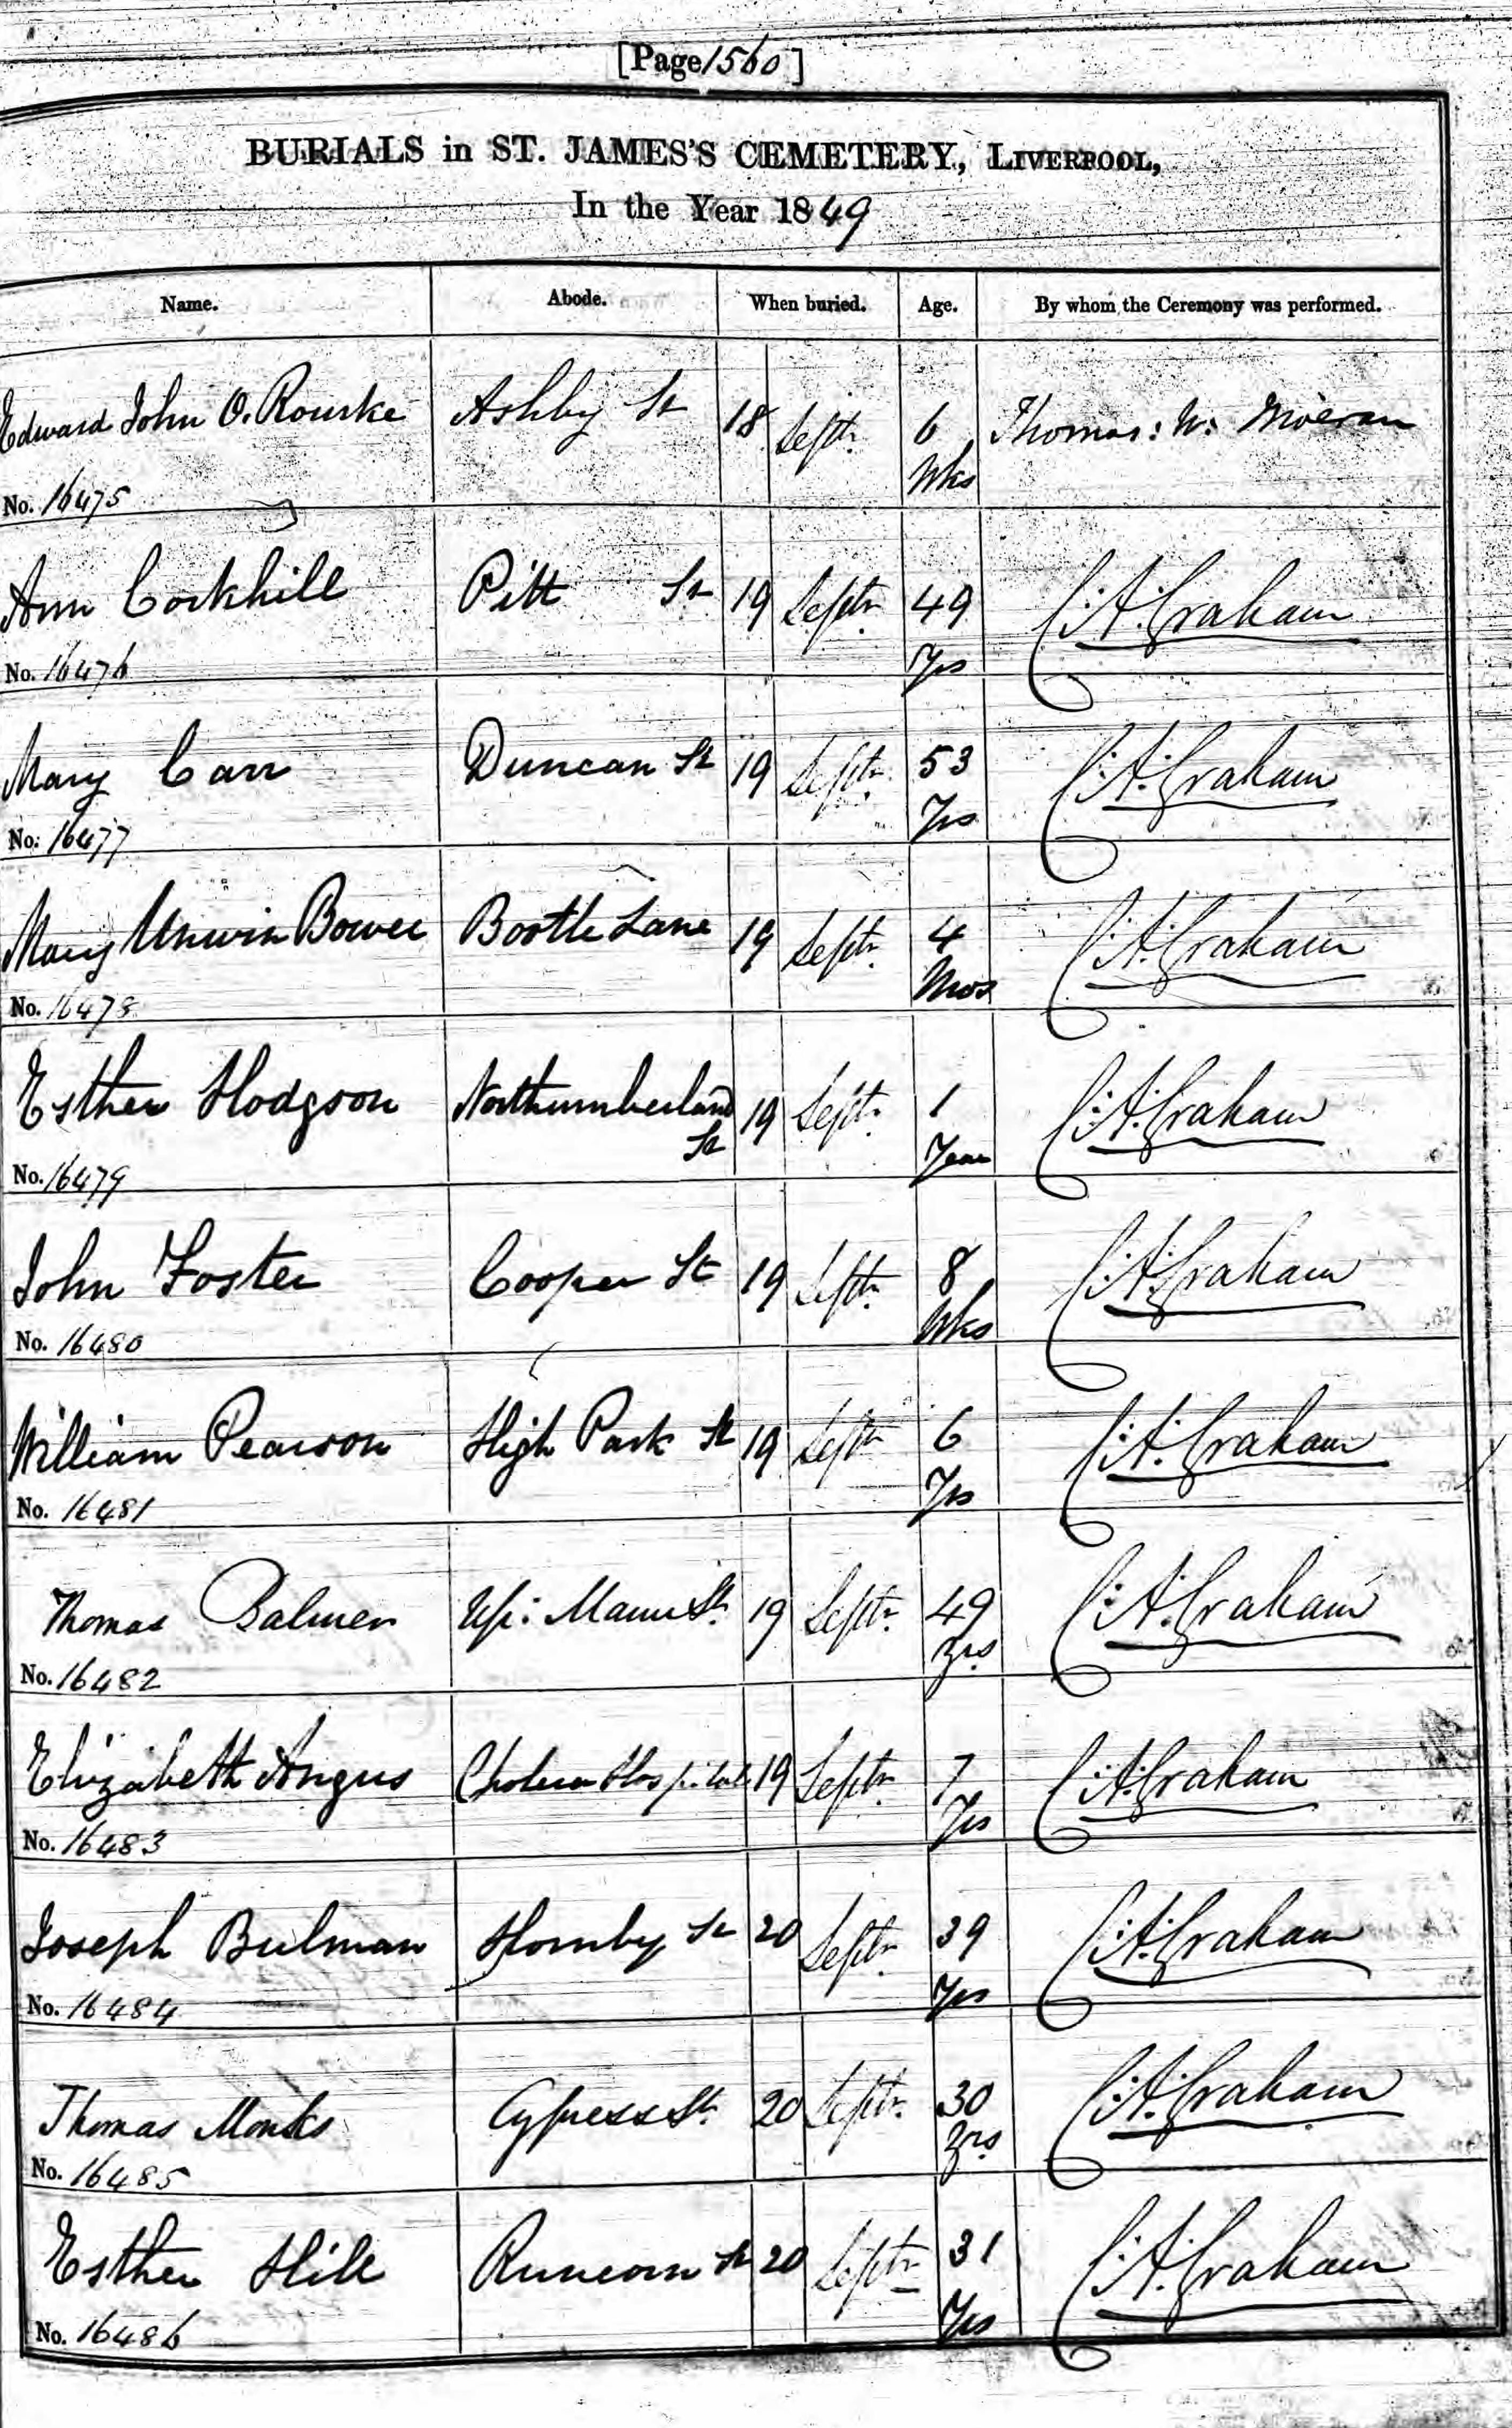 [Page 1560]
BURIALS in ST. JAMES'S CEMETERY, LIVERPOOL,
In the Year 1849
Name. Abode. When buried. Age. By whom the Ceremony was performed.
Edward John O. Rourke Ashby St 18 Septr. 6 Wks Thomas: W: Moeran
No. 16475
Ann Corkhill Pitt St 19 Septr. 49 Yrs C: A: Graham
No. 16476
Mary Carr Duncan St 19 Septr. 53 Yrs C: A: Graham
No. 16477
Mary Unwin Bower Bootle Lane 19 Septr. 4 Mos C: A: Graham
No. 16478
Esther Hodgson Northumberland St 19 Septr. 1 Year C: A: Graham
No. 16479
John Foster Cooper St 19 Septr. 8 Wks C: A: Graham
No. 16480
William Pearson High Park St 19 Septr 6 Yrs C: A: Graham
No. 16481
Thomas Balmer Up: Mann St. 19 Septr. 49 yrs C: A: Graham
No. 16482
Elizabeth Angus Cholera Hospital 19 Septr. 7 Yrs C: A: Graham
No. 16483
Joseph Bulman Hornby St 20 Septr. 39 Yrs C: A: Graham
No. 16484
Thomas Monks Cypress St. 20 Septr. 30 yrs C: A: Graham
No. 16485
Esther Hill Runcorn St 20 Septr 31 Yrs C: A: Graham
No. 16486